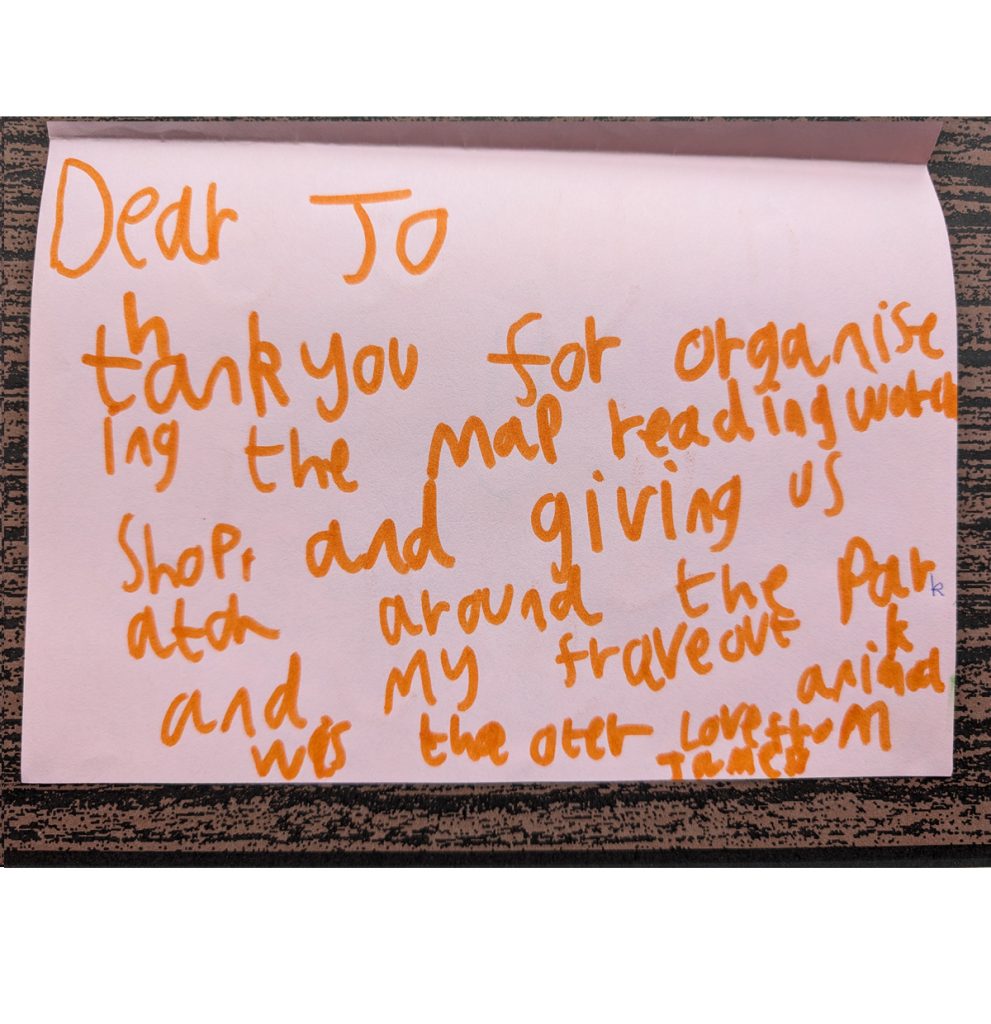 Dear Jo
thankyou for organise
ing the map reading work
shop, and giving us
around the park
and my fraveout animal
was the oter Love from
James